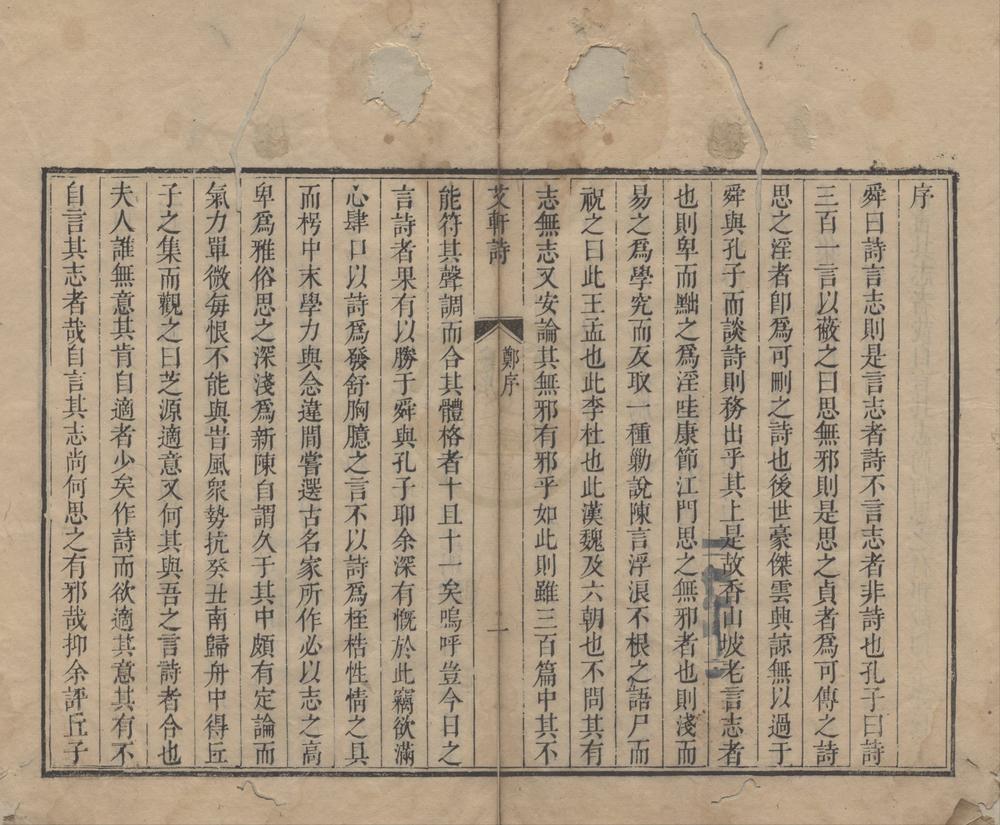 序
舜曰詩言志則是言志者詩不言志者非詩也孔子曰詩
三百一言以蔽之曰思無邪則是思之貞者爲可傳之詩
思之淫者卽爲可刪之詩也後世豪傑雲興諒無以過于
舜與孔子而談詩則務出乎其上是故香山坡老言志者
也則卑而黜之爲淫哇康節江門思之無邪者也則淺而
易之爲學究而反取一種勦說陳言浮浪不根之語尸而
祝之曰此王孟也此李杜也此漢魏及六朝也不問其有
志無志又安論其無邪有邪乎如此則雖三百篇中其不
艾軒詩
鄭序
一
能符其聲調而合其體格者十且十一矣嗚呼豈今日之
言詩者果有以勝于舜與孔子耶余深有慨於此竊欲滿
心肆口以詩爲發舒胸臆之言不以詩爲桎梏性情之具
而樗中末學力與念違間嘗選古名家所作必以志之高
卑爲雅俗思之深淺爲新陳自謂久于其中頗有定論而
氣力單微每恨不能與昔風衆勢抗癸丑南歸舟中得丘
子之集而觀之曰芝源適意又何其與吾之言詩者合也
夫人誰無意其肯自適者少矣作詩而欲適其意其有不
自言其志者哉自言其志尚何思之有邪哉抑余評丘子